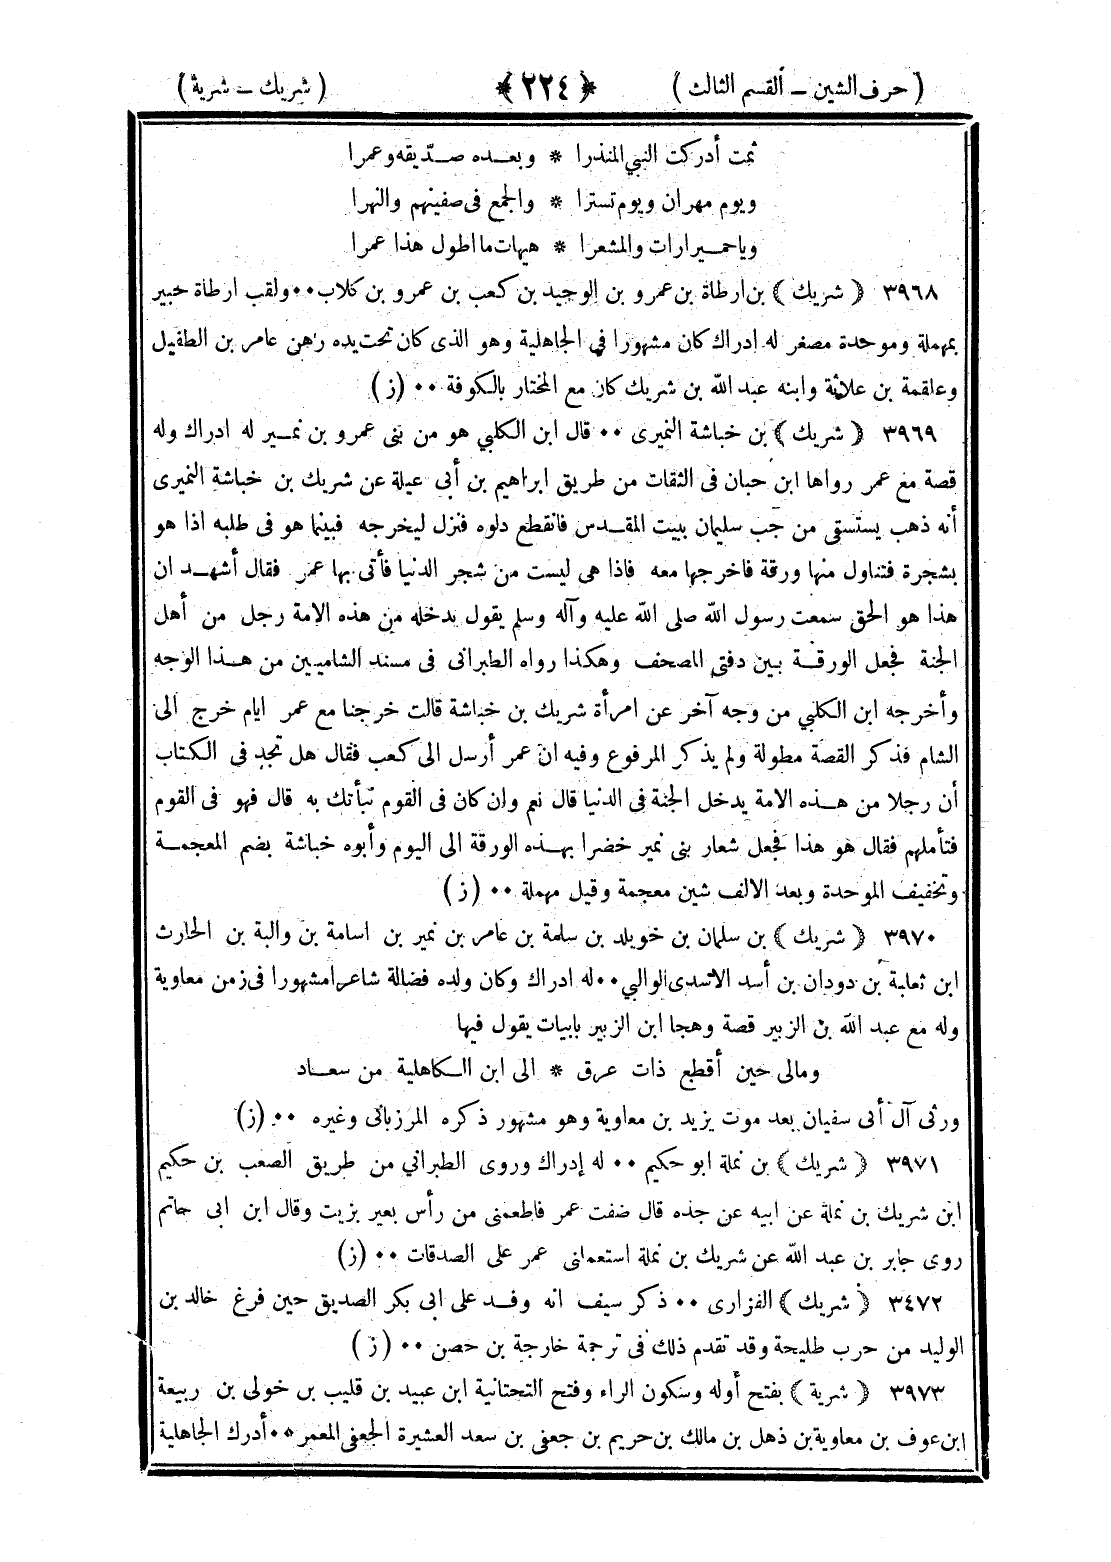 ( حرف الشين – القسم الثالث ) ﴿ ٢٢٤ ﴾ ( شريك – شرية )
ثمت أدركت النبي المنذرا * وبعده صدّيقه وعمرا
ويوم مهران ويوم تسترا * والجمع فى صفينهم والنهرا
وياحميرارات والمشعرا * هيهات ما اطول هذا عمرا
٣٩٦٨ ﴿ شريك ﴾ بن ارطاة بن عمرو بن الوحيد بن كعب بن عمرو بن كلاب ٠٠ ولقب ارطاة حبير
بمهملة وموحدة مصغر له ادراك كان مشهورا في الجاهلية وهو الذى كان تحت يده رهن عامر بن الطفيل
وعلقمة بن علاثة وابنه عبد الله بن شريك كان مع المختار بالكوفة ٠٠ (ز)
٣٩٦٩ ﴿ شريك ﴾ بن خباشة النميرى ٠٠ قال ابن الكلبي هو من بنى عمرو بن نمير له ادراك وله
قصة مع عمر رواها ابن حبان فى الثقات من طريق ابراهيم بن أبى عبلة عن شريك بن خباشة النميرى
أنه ذهب يستسقى من جب سليمان ببيت المقدس فانقطع دلوه فنزل ليخرجه فبينما هو فى طلبه اذا هو
بشجرة فتناول منها ورقة فاخرجها معه فاذا هى ليست من شجر الدنيا فأتى بها عمر فقال أشهد ان
هذا هو الحق سمعت رسول الله صلى الله عليه وآله وسلم يقول يدخله من هذه الامة رجل من أهل
الجنة فجعل الورقة بين دفتي المصحف وهكذا رواه الطبرانى فى مسند الشاميين من هذا الوجه
وأخرجه ابن الكلبي من وجه آخر عن امرأة شريك بن خباشة قالت خرجنا مع عمر ايام خرج الى
الشام فذكر القصة مطولة ولم يذكر المرفوع وفيه ان عمر أرسل الى كعب فقال هل تجد فى الكتاب
أن رجلا من هذه الامة يدخل الجنة فى الدنيا قال نعم وان كان فى القوم نبأتك به قال فهو فى القوم
فتأملهم فقال هو هذا فجعل شعار بنى نمير خضرا بهذه الورقة الى اليوم وأبوه خباشة بضم المعجمة
وتخفيف الموحدة وبعد الالف شين معجمة وقيل مهملة ٠٠ (ز)
٣٩٧٠ ﴿ شريك ﴾ بن سلمان بن خويلد بن سلمة بن عامر بن نمير بن اسامة بن والبة بن الحارث
ابن ثعلبة بن دودان بن أسد الاسدى الوالبي ٠٠ له ادراك وكان ولده فضالة شاعرا مشهورا فى زمن معاوية
وله مع عبد الله بن الزبير قصة وهجا ابن الزبير بابيات يقول فيها
ومالى حين أقطع ذات عرق * الى ابن الكاهلية من سعاد
ورثى آل أبى سفيان بعد موت يزيد بن معاوية وهو مشهور ذكره المرزبانى وغيره ٠٠ (ز)
٣٩٧١ ﴿ شريك ﴾ بن نملة ابو حكيم ٠٠ له إدراك وروى الطبراني من طريق الصعب بن حكيم
ابن شريك بن نملة عن ابيه عن جده قال ضفت عمر فاطعمنى من رأس بعير بزيت وقال ابن ابى حاتم
روى جابر بن عبد الله عن شريك بن نملة استعملنى عمر على الصدقات ٠٠ (ز)
٣٤٧٢ ﴿ شريك ﴾ الفزارى ٠٠ ذكر سيف انه وفد على ابى بكر الصديق حين فرغ خالد بن
الوليد من حرب طليحة وقد تقدم ذلك فى ترجمة خارجة بن حصن ٠٠ (ز)
٣٩٧٣ ﴿ شرية ﴾ بفتح أوله وسكون الراء وفتح التحتانية ابن عبيد بن قليب بن خولى بن ربيعة
ابن عوف بن معاوية بن ذهل بن مالك بن حريم بن جعفى بن سعد العشيرة الجعفى المعمر ٠٠ أدرك الجاهلية